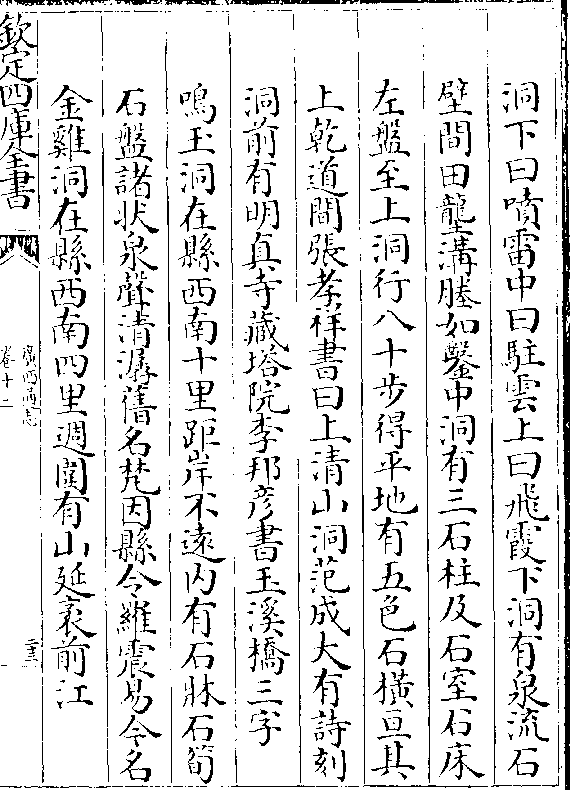 洞下曰噴雷中曰駐雲上曰飛霞下洞有泉流石
壁間田壟溝塍如鑿中洞有三石柱及石室石床
左盤至上洞行八十步得平地有五色石橫亘其
上乾道間張孝祥書曰上清山洞范成大有詩刻
洞前有明真寺藏塔院李邦彦書玉溪橋三字
鳴玉洞在縣西南十里距岸不遠内有石牀石筍
石盤諸狀泉聲清潺舊名梵因縣令羅震易今名
金雞洞在縣西南四里週圍有山延袤前江
欽定四庫全書
廣西通志
卷十一
二十三